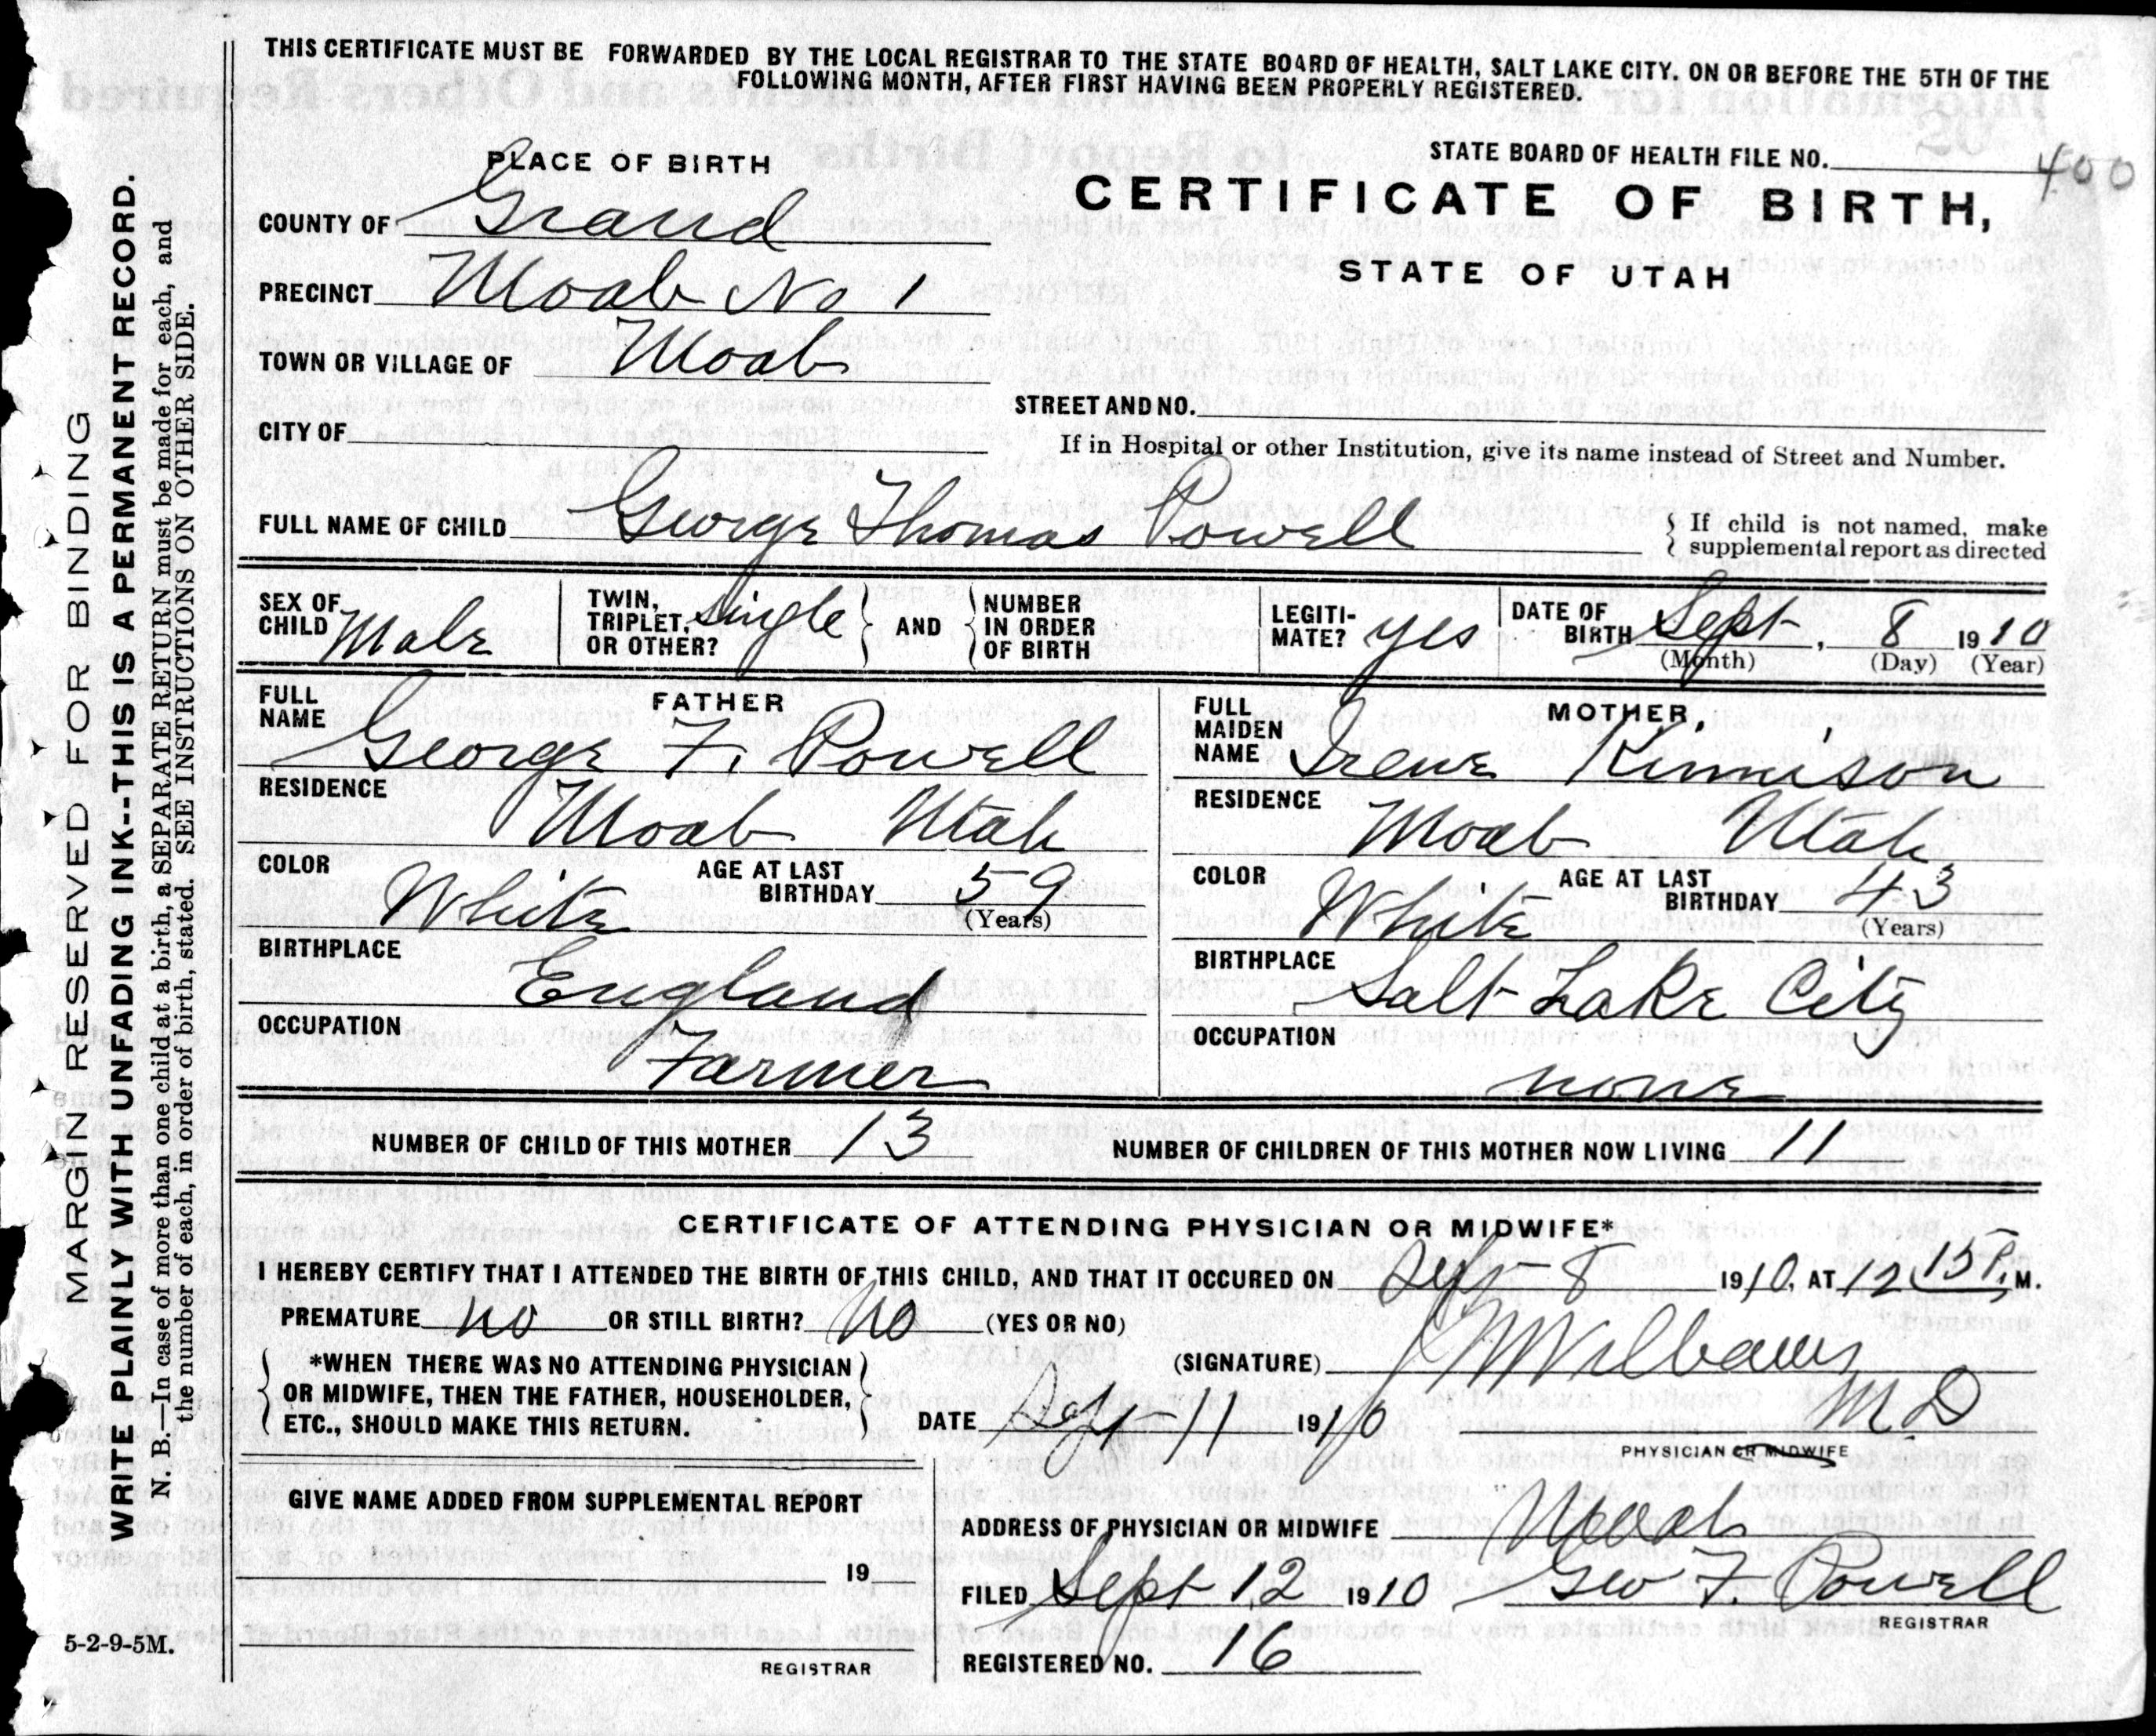 THIS CERTIFICATE MUST BE FORWARDED BY THE LOCAL REGISTRAR TO THE STATE BOARD OF HEALTH, SALT LAKE CITY. ON OR BEFORE THE 5TH OF THE
FOLLOWING MONTH, AFTER FIRST HAVING BEEN PROPERLY REGISTERED.
PLACE OF BIRTH
STATE BOARD OF HEALTH FILE NO. 400
CERTIFICATE OF BIRTH,
STATE OF UTAH
COUNTY OF Grand
PRECINCT Moab No 1
TOWN OR VILLAGE OF Moab
STREET AND NO.
CITY OF
If in Hospital or other Institution, give its name instead of Street and Number.
FULL NAME OF CHILD George Thomas Powell
If child is not named, make
supplemental report as directed
SEX OF
CHILD Male
TWIN,
TRIPLET,
OR OTHER? single
AND
NUMBER
IN ORDER
OF BIRTH
LEGITI-
MATE? yes
DATE OF
BIRTH Sept, 8 1910
(Month) (Day) (Year)
FATHER
FULL
NAME George F. Powell
RESIDENCE
Moab Utah
COLOR White
AGE AT LAST
BIRTHDAY 59
(Years)
BIRTHPLACE
England
OCCUPATION
Farmer
MOTHER,
FULL
MAIDEN
NAME Irene Kinnison
RESIDENCE
Moab Utah
COLOR White
AGE AT LAST
BIRTHDAY 43
(Years)
BIRTHPLACE
Salt Lake City
OCCUPATION
none
NUMBER OF CHILD OF THIS MOTHER 13
NUMBER OF CHILDREN OF THIS MOTHER NOW LIVING 11
CERTIFICATE OF ATTENDING PHYSICIAN OR MIDWIFE*
I HEREBY CERTIFY THAT I ATTENDED THE BIRTH OF THIS CHILD, AND THAT IT OCCURED ON Sept 8 1910, AT 12 15 P. M.
PREMATURE no OR STILL BIRTH? no (YES OR NO)
*WHEN THERE WAS NO ATTENDING PHYSICIAN
OR MIDWIFE, THEN THE FATHER, HOUSEHOLDER,
ETC., SHOULD MAKE THIS RETURN.
(SIGNATURE) J W Williams
M.D
DATE Sept 11 1910
PHYSICIAN OR MIDWIFE
GIVE NAME ADDED FROM SUPPLEMENTAL REPORT
19
REGISTRAR
ADDRESS OF PHYSICIAN OR MIDWIFE Moab
FILED Sept 12 1910 Geo F. Powell
REGISTRAR
REGISTERED NO. 16
5-2-9-5M.
MARGIN RESERVED FOR BINDING
WRITE PLAINLY WITH UNFADING INK--THIS IS A PERMANENT RECORD.
N. B.—In case of more than one child at a birth, a SEPARATE RETURN must be made for each, and
the number of each, in order of birth, stated. SEE INSTRUCTIONS ON OTHER SIDE.